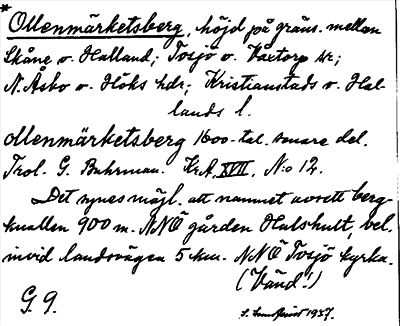 * Ollenmärketsberg, höjd på gräns. mellan
Skåne o. Halland; Tosjö o. Våxtorp sr;
N. Åsbo o. Höks hdr; Kristianstads o. Hal-
lands l.
Ollenmärketsberg 1600-tal. senare del.
Trol. G. Buhrman. Kr.A XVII, N:o 12.
Det synes möjl. att namnet avsett berg-
knallen 900 m. NNÖ gården Halshult, bel.
invid landsvägen 5 km. NNÖ Tosjö kyrka.
(Vänd!)
G. 9.
1937.